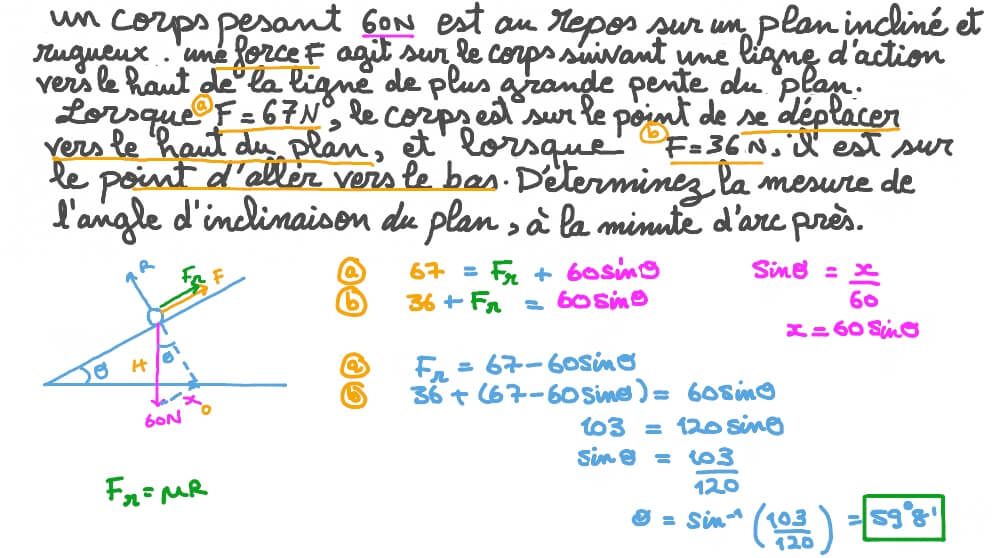 un corps pesant 60N est au repos sur un plan incliné et
rugueux. une force F agit sur le corps suivant une ligne d'action
vers le haut de la ligne de plus grande pente du plan.
Lorsque ⓐ F = 67N, le corps est sur le point de se déplacer
vers le haut du plan, et lorsque ⓑ F = 36N, il est sur
le point d'aller vers le bas. Déterminez la mesure de
l'angle d'inclinaison du plan, à la minute d'arc près.
R Fr F
θ H θ
x O
60N
Fr = μR
ⓐ 67 = Fr + 60sinθ
ⓑ 36 + Fr = 60sinθ
Sinθ = x/60
x = 60Sinθ
ⓐ Fr = 67 - 60sinθ
ⓑ 36 + (67 - 60sinθ) = 60sinθ
103 = 120sinθ
sinθ = 103/120
θ = sin⁻¹ (103/120) = 59°8'